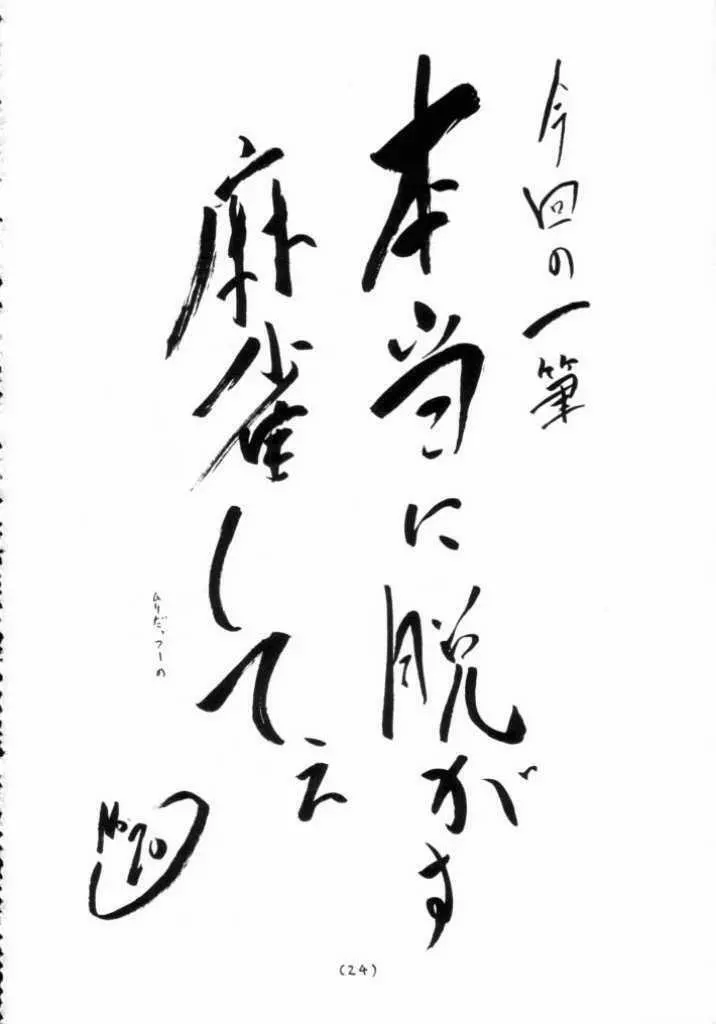 今回の一筆
本当に脱がす
麻雀してえ
ムリだっつーの
No.70
(24)